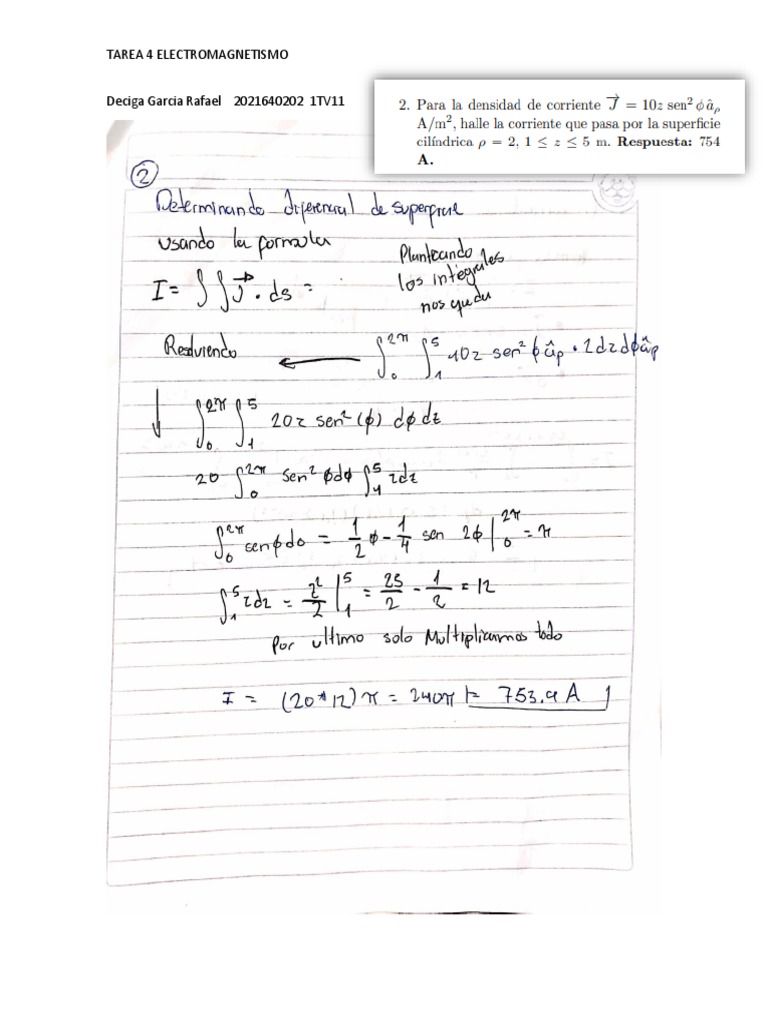 TAREA 4 ELECTROMAGNETISMO
Deciga Garcia Rafael 2021640202 1TV11
2. Para la densidad de corriente J⃗ = 10z sen² ϕ âρ
A/m², halle la corriente que pasa por la superficie
cilíndrica ρ = 2, 1 ≤ z ≤ 5 m. Respuesta: 754
A.
②
Determinando diferencial de superficie
usando la formula
I = ∫∫ J⃗ · ds =
Planteando
los integrales
nos queda
Resolviendo ← ∫₀^2π ∫₁^5 10z sen² ϕ âρ · 2dzdϕ âρ
↓ ∫₀^2π ∫₁^5 20z sen² (ϕ) dϕdz
20 ∫₀^2π sen² ϕdϕ ∫₁^5 zdz
∫₀^2π senϕdo = 1/2 ϕ - 1/4 sen 2ϕ |₀^2π = π
∫₁^5 zdz = z²/2 |₁^5 = 25/2 - 1/2 = 12
Por ultimo solo Multiplicamos todo
I = (20*12)π = 240π = 753.9 A